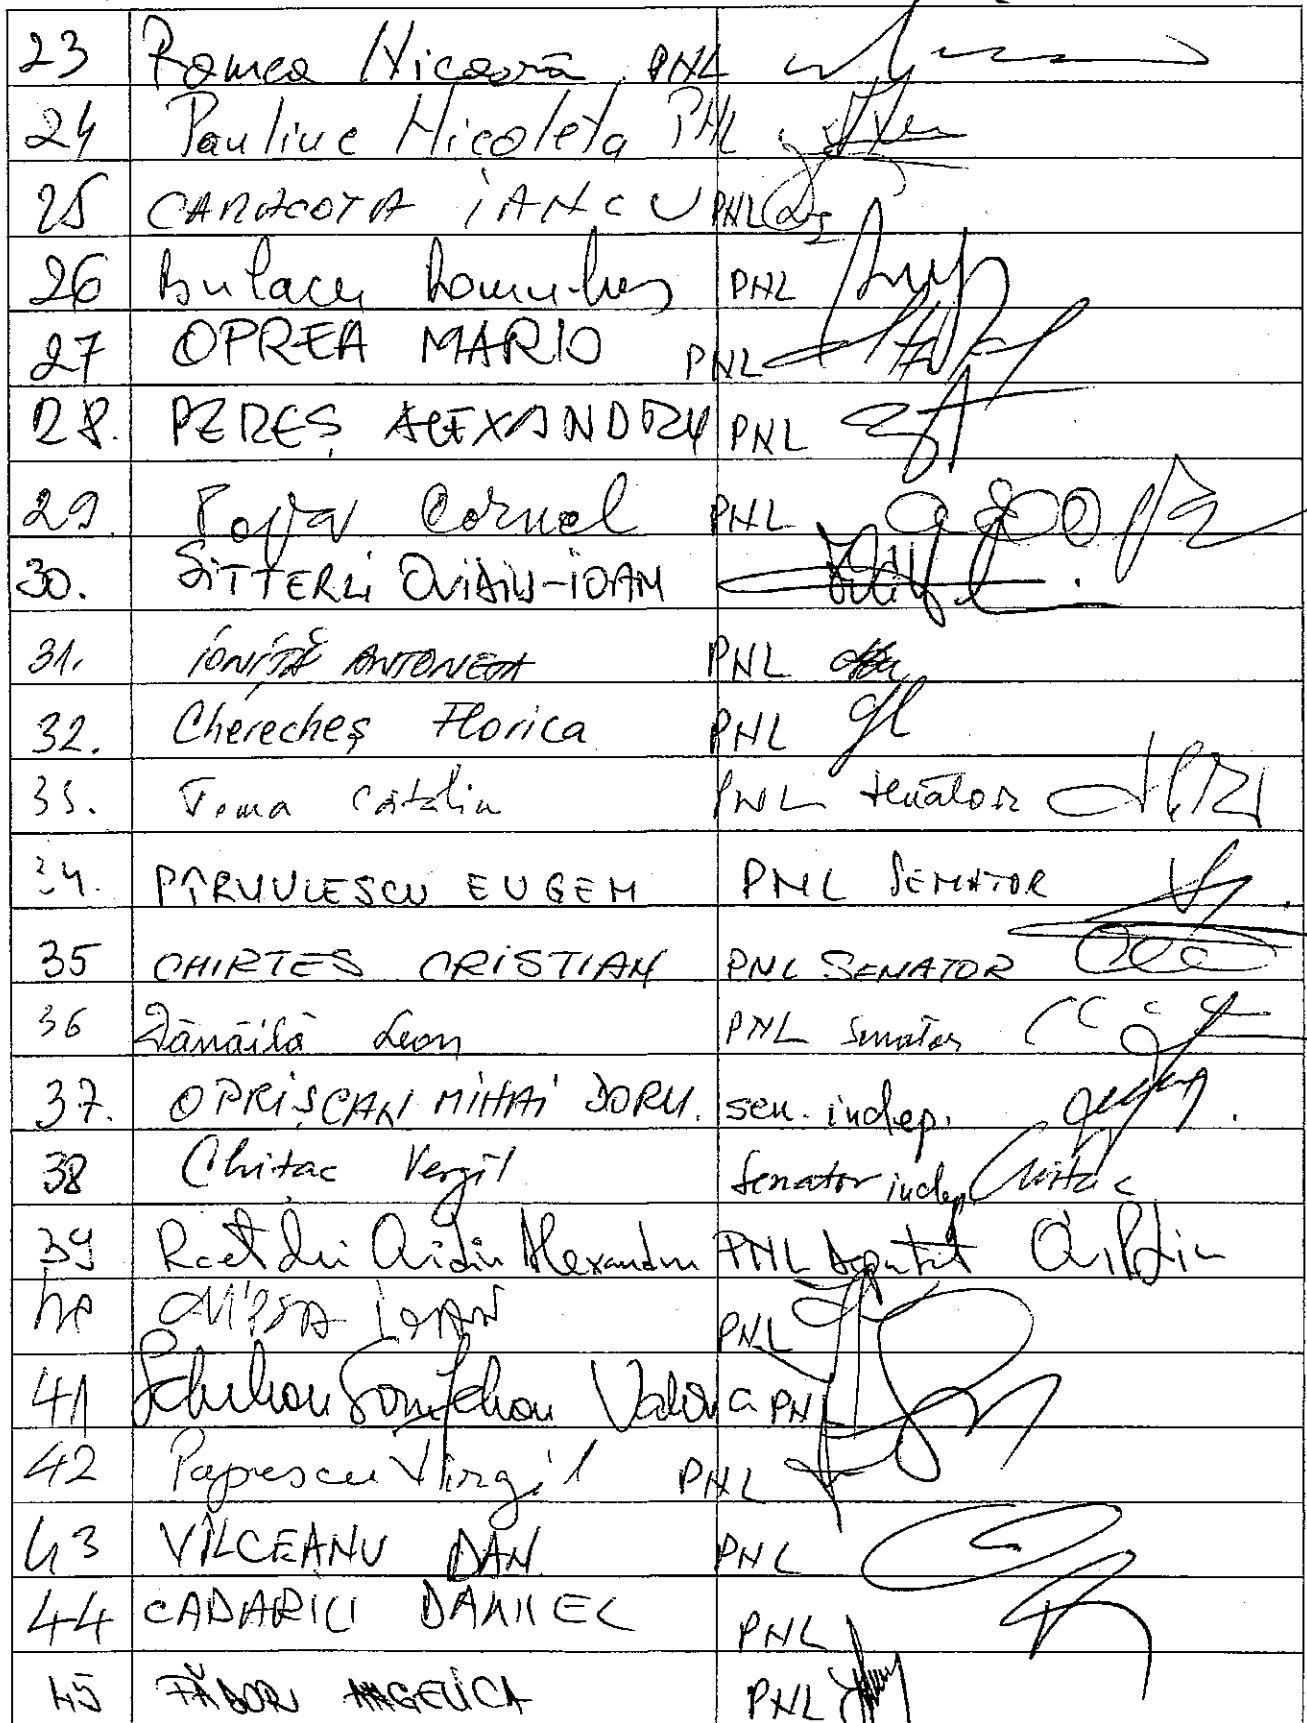 23 Romeo Nicoară PNL
24 Pauliuc Nicoleta PNL
25 CARACOTA IANCU PNL
26 Bulacu Romulus PNL
27 OPREA MARIO PNL
28. PEREȘ ALEXANDRU PNL
29. Popa Cornel PNL
30. SITTERLI OVIDIU-IOAN
31. IONIȚĂ ANTONETA PNL
32. Cherecheș Florica PNL
33. Toma Cătălin PNL senator
34. PÎRVULESCU EUGEN PNL SENATOR
35 CHIRTES CRISTIAN PNL SENATOR
36 Dănăilă Leon PNL Senator
37. OPRIȘCAN MIHAI DORU. sen. indep.
38 Chitac Vergil Senator indep
39 Raețchi Ovidiu Alexandru PNL Deputat
40 PNL
41 Schelian Somfelean Valeria PNL
42 Popescu Virgil PNL
43 VÎLCEANU DAN PNL
44 CADARIU DANIEL PNL
45 FĂDOR ANGELICA PNL